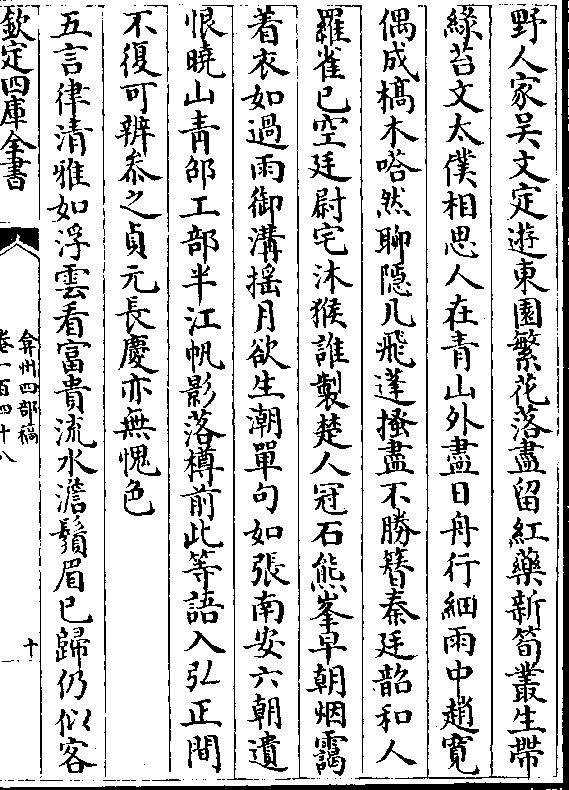 野人家吴文定遊東園繁花落盡留紅藥新筍叢生帶
綠苔文太僕相思人在青山外盡日舟行細雨中趙寛
偶成槁木嗒然聊隠几飛蓬搔盡不勝簪秦廷韶和人
羅雀已空廷尉宅沐猴誰製楚人冠石熊峯早朝烟靄
着衣如過雨御溝揺月欲生潮單句如張南安六朝遺
恨曉山青邵工部半江帆影落樽前此等語入弘正間
不復可辨叅之貞元長慶亦無愧色
五言律清雅如浮雲看富貴流水澹鬚眉已歸仍似客
欽定四庫全書
弇州四部稿
卷一百四十八
十